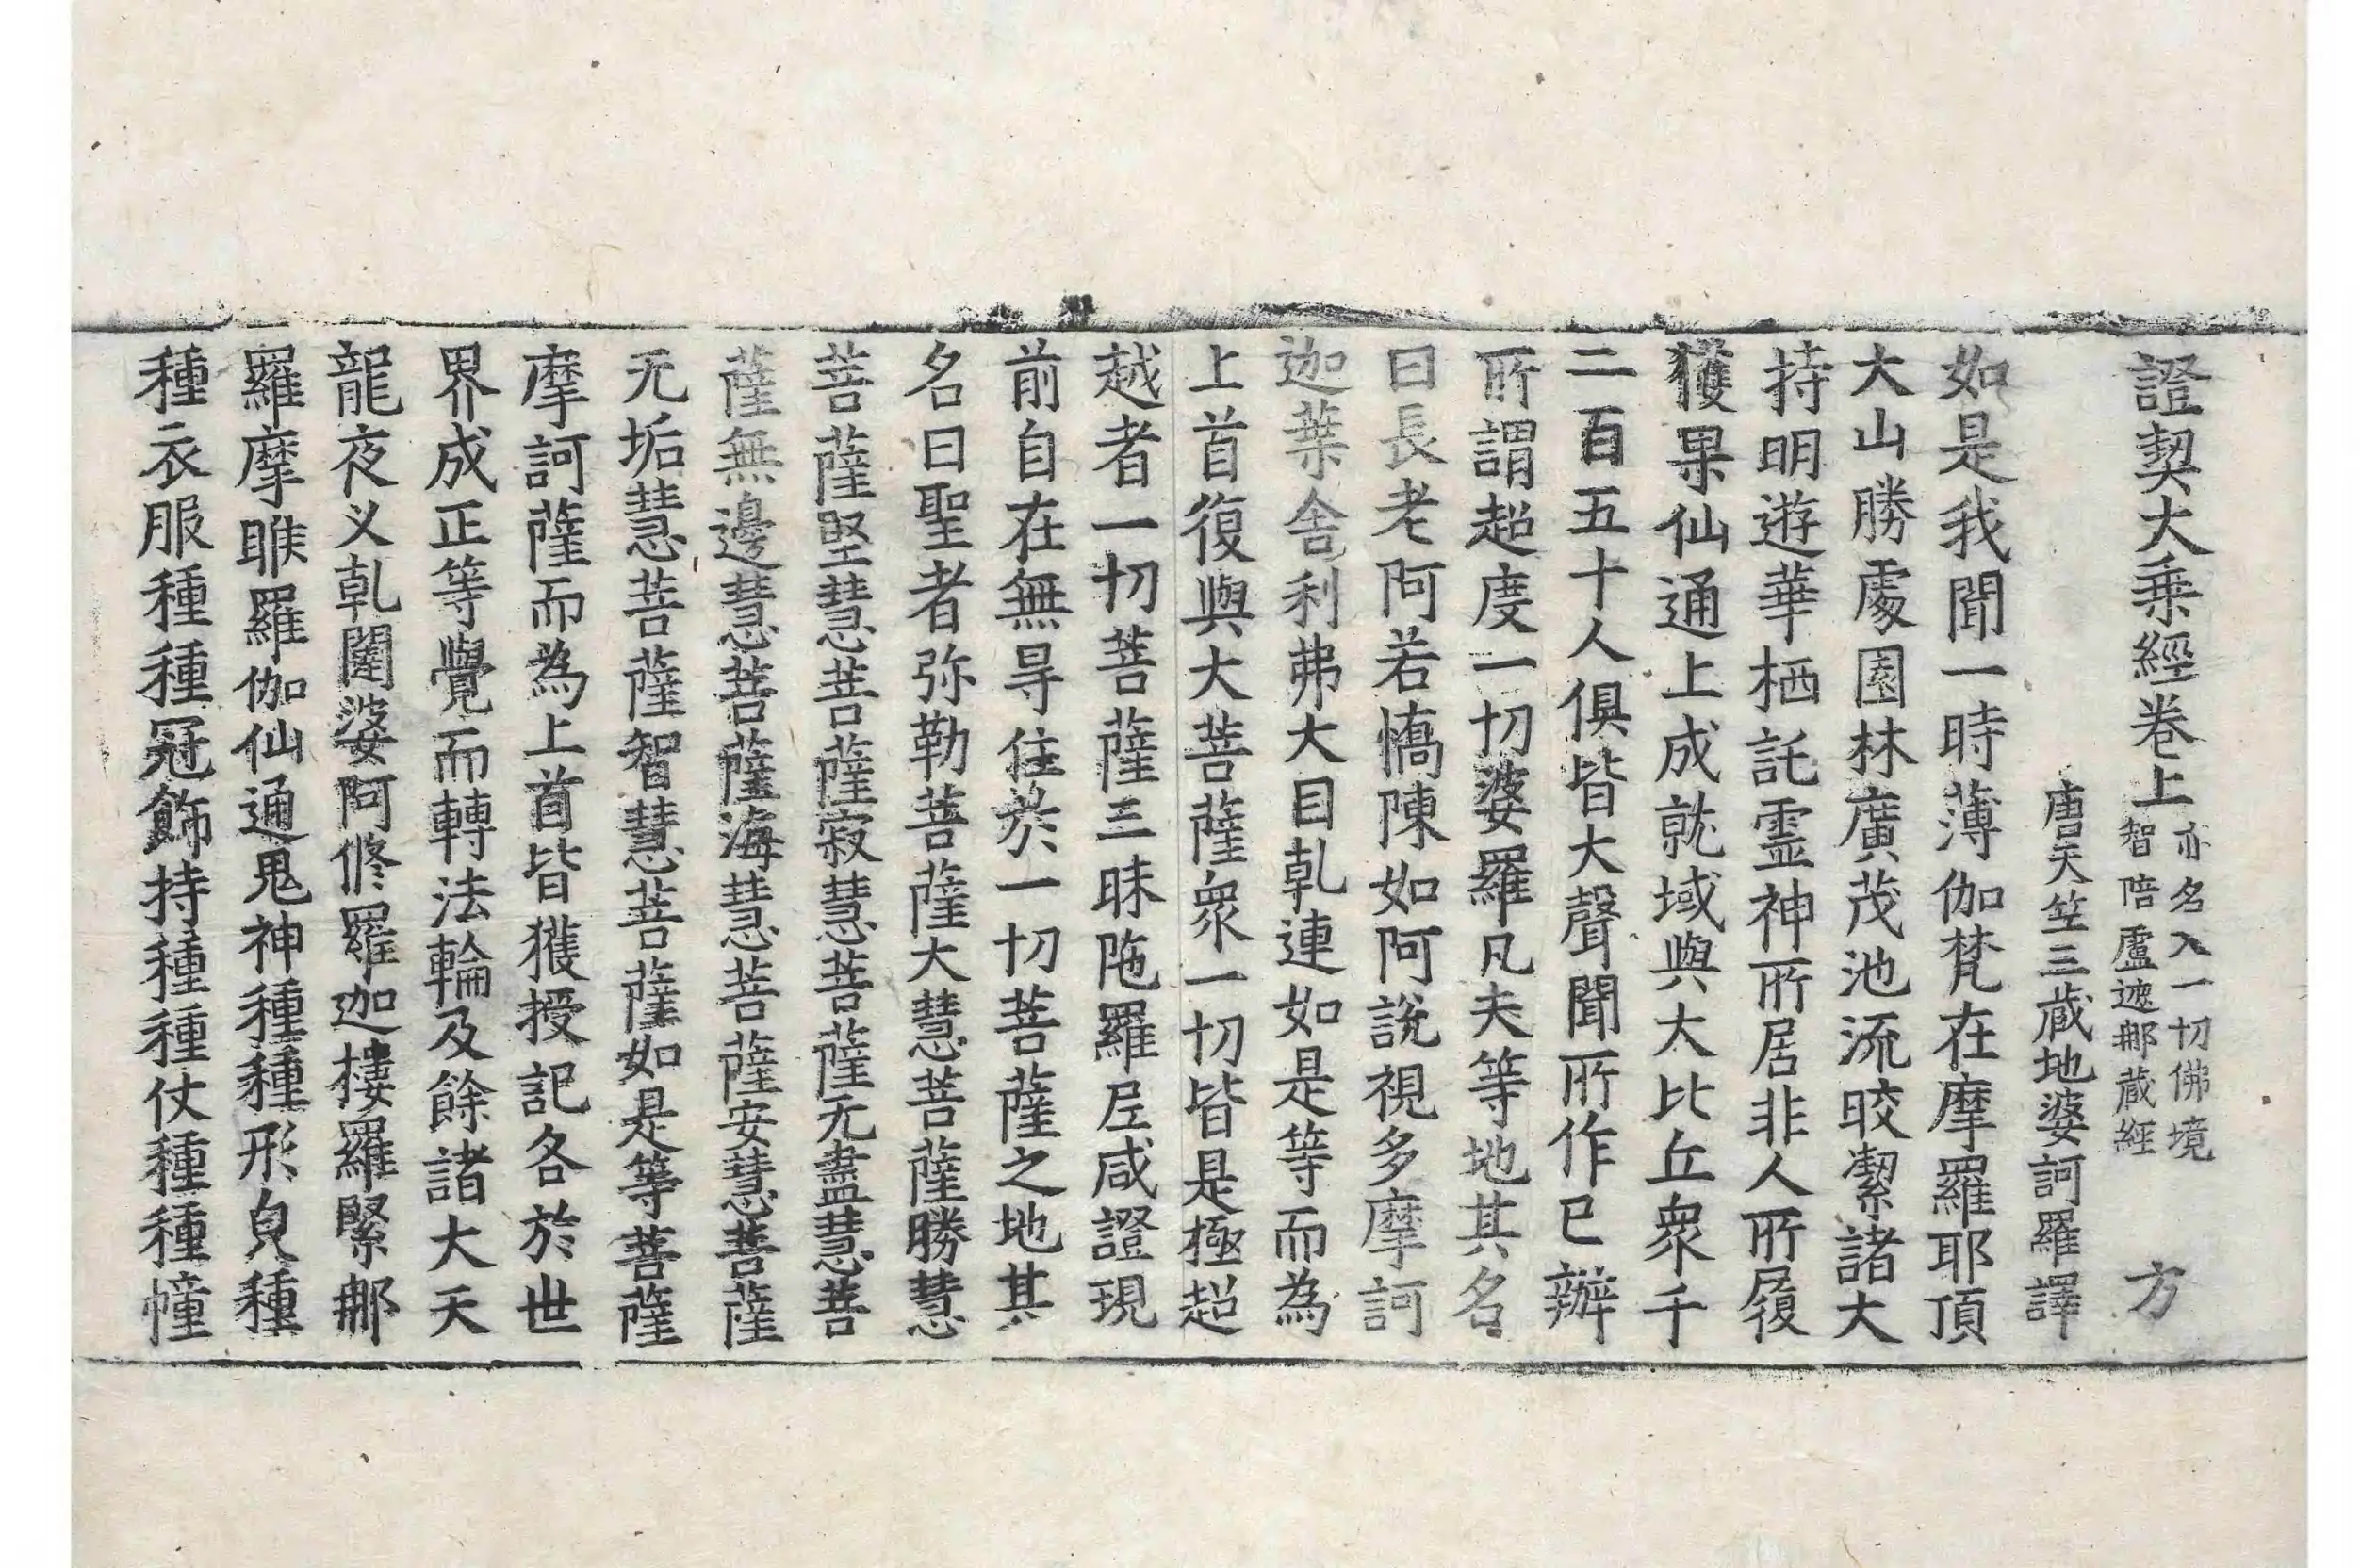 證契大乘經卷上 亦名入一切佛境智陪盧遮那藏經 方
唐天竺三藏地婆訶羅譯
如是我聞一時薄伽梵在摩羅耶頂
大山勝處園林廣茂池流皎潔諸大
持明遊華栖託霊神所居非人所履
獲果仙通上成就域與大比丘衆千
二百五十人俱皆大聲聞所作已辦
所謂超度一切婆羅凡夫等地其名
曰長老阿若憍陳如阿說視多摩訶
迦葉舍利弗大目乹連如是等而為
上首復與大菩薩衆一切皆是極超
越者一切菩薩三昧陁羅尼咸證現
前自在無㝵住於一切菩薩之地其
名曰聖者弥勒菩薩大慧菩薩勝慧
菩薩堅慧菩薩寂慧菩薩无盡慧菩
薩無邊慧菩薩海慧菩薩安慧菩薩
无垢慧菩薩智慧菩薩如是等菩薩
摩訶薩而為上首皆獲授記各於世
界成正等覺而轉法輪及餘諸大天
龍夜叉乹闥婆阿脩羅迦樓羅緊那
羅摩睺羅伽仙通鬼神種種形皃種
種衣服種種冠飾持種種仗種種幢